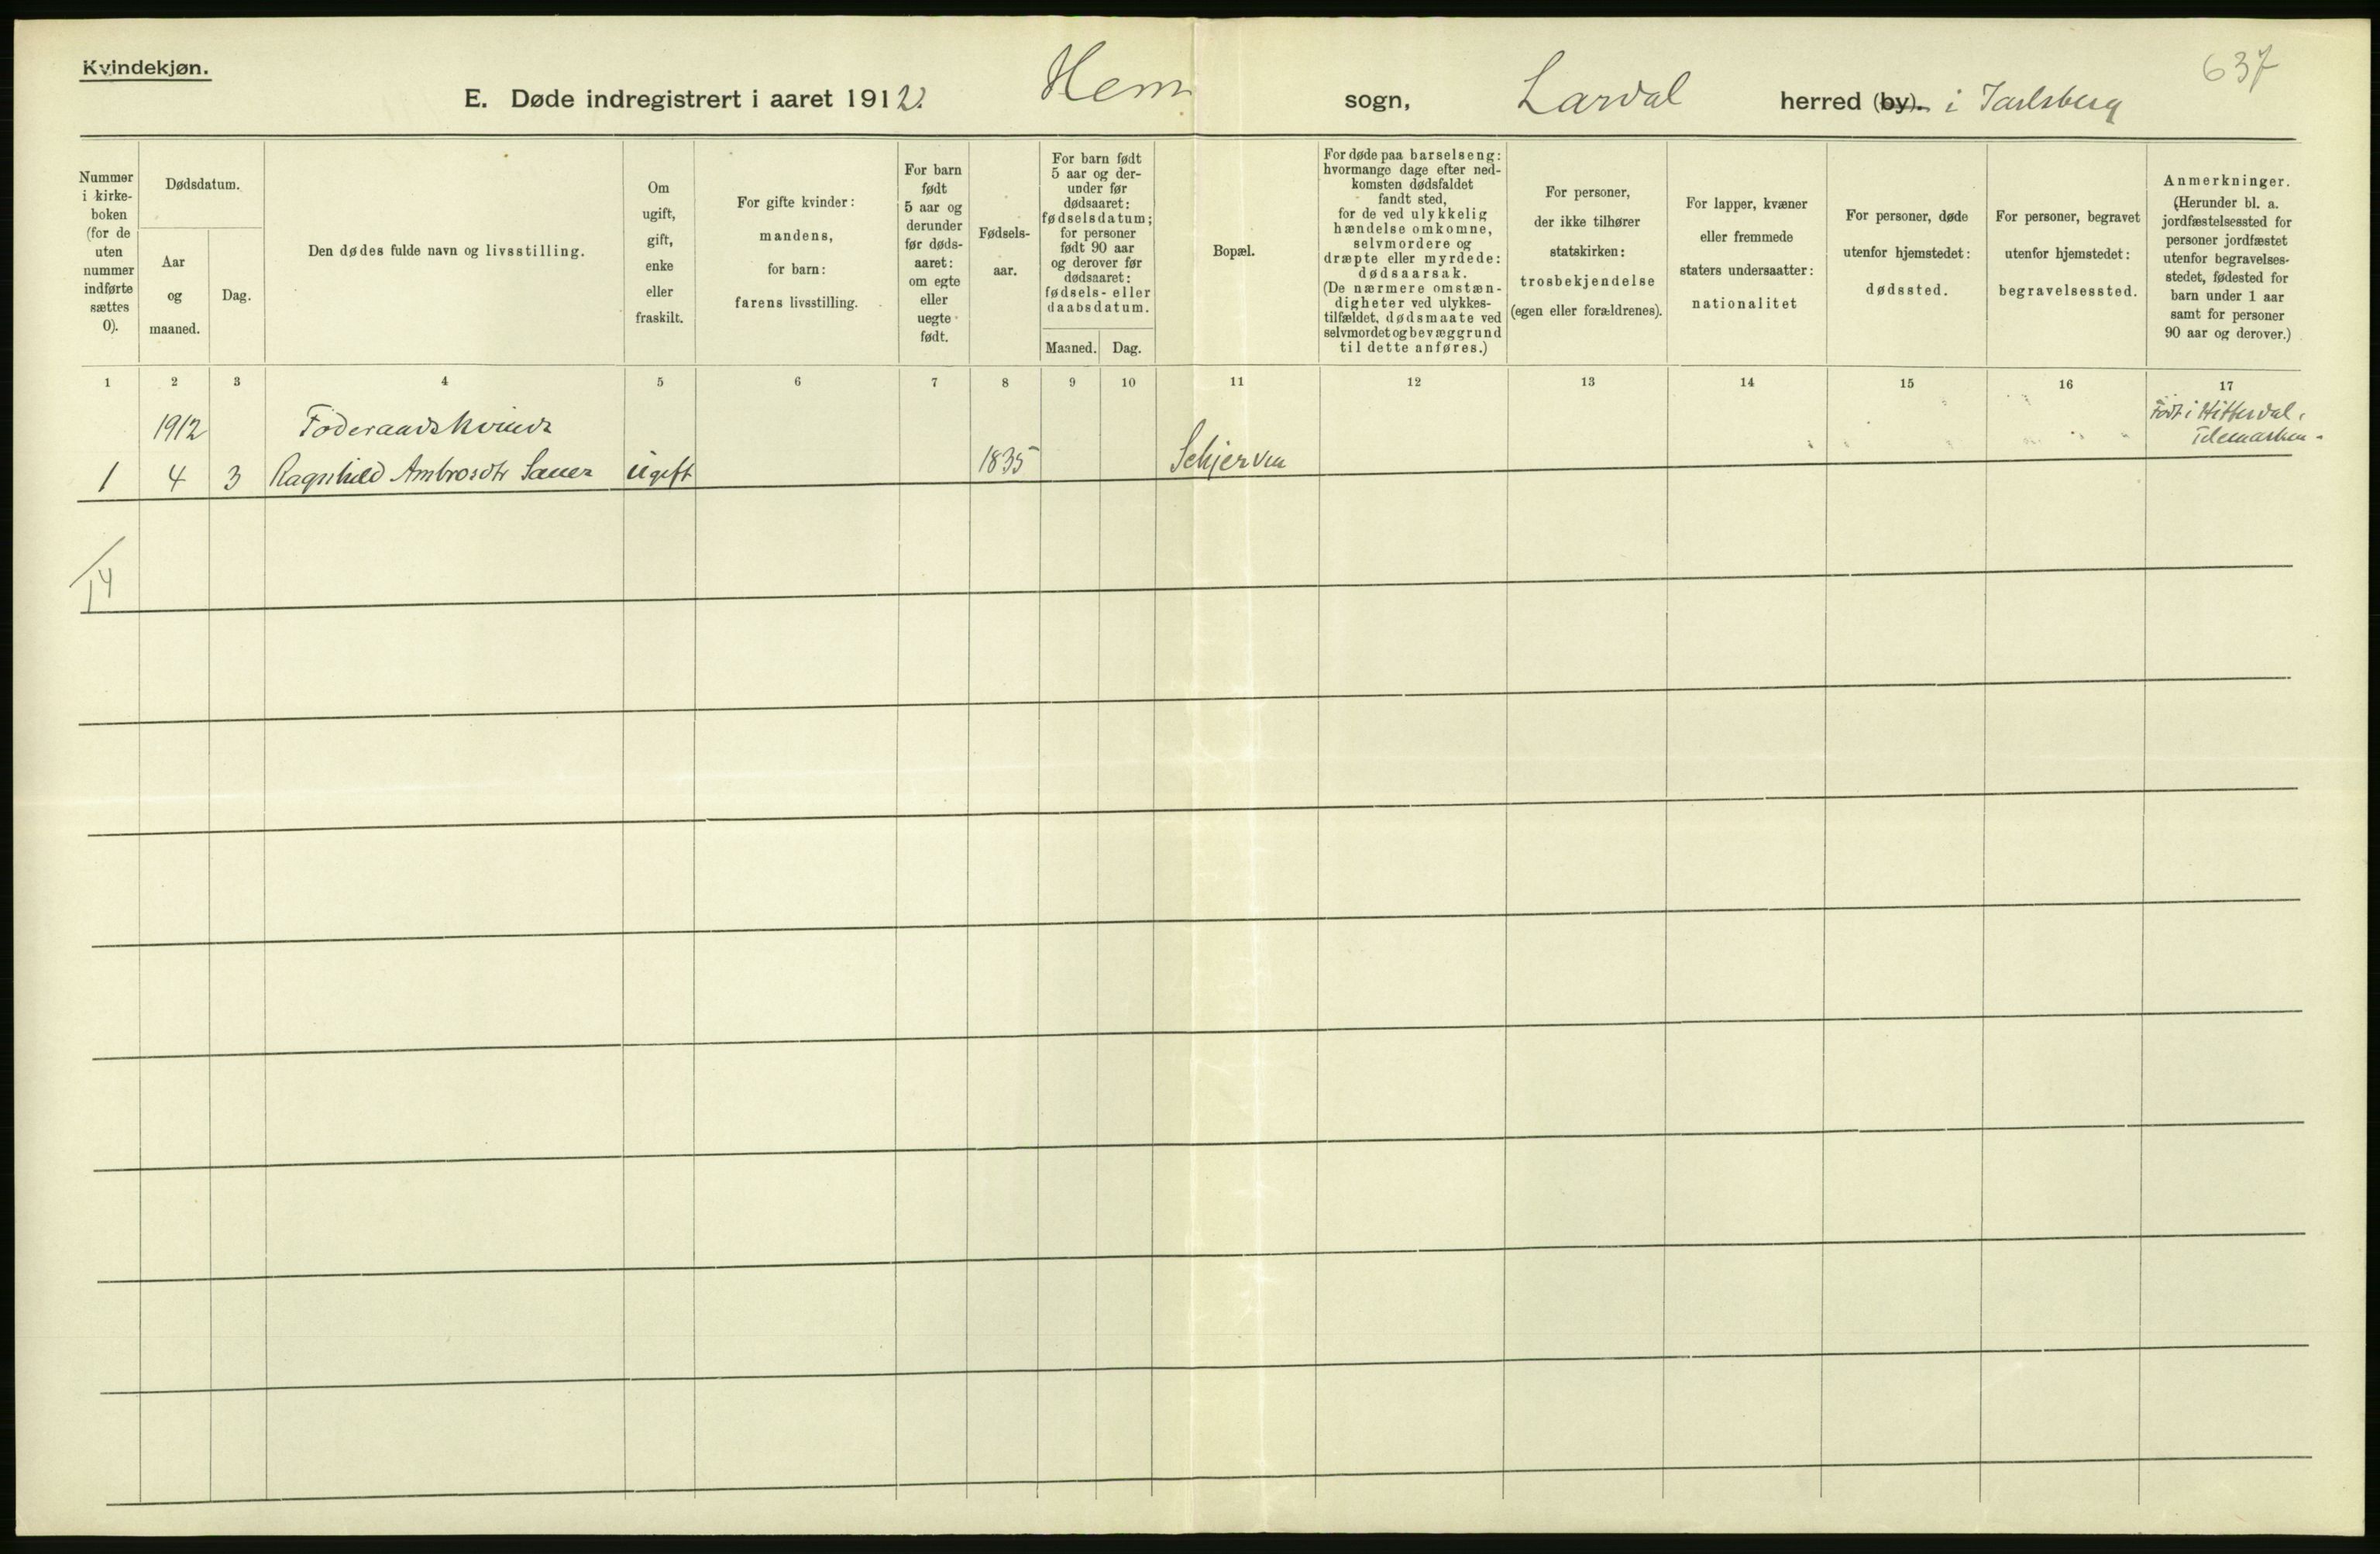 Kvindekjøn.
637
E. Døde indregistrert i aaret 1912. Hem sogn, Lardal herred (by). i Jarlsberg
Nummer
i kirke-
boken
(for de
uten
nummer
indførte
sættes
0).
Dødsdatum.
Aar
og
maaned.
Dag.
Den dødes fulde navn og livsstilling.
Om
ugift,
gift,
enke
eller
fraskilt.
For gifte kvinder:
mandens,
for barn:
farens livsstilling.
For barn
født
5 aar og
derunder
før døds-
aaret:
om egte
eller
uegte
født.
Fødsels-
aar.
For barn født
5 aar og der-
under før
dødsaaret:
fødselsdatum;
for personer
født 90 aar
og derover før
dødsaaret:
fødsels- eller
daabsdatum.
Maaned.
Dag.
Bopæl.
For døde paa barselseng:
hvormange dage efter ned-
komsten dødsfaldet
fandt sted,
for de ved ulykkelig
hændelse omkomne,
selvmordere og
dræpte eller myrdede:
dødsaarsak.
(De nærmere omstæn-
digheter ved ulykkes-
tilfældet, dødsmaate ved
selvmordet og bevæggrund
til dette anføres.)
For personer,
der ikke tilhører
statskirken:
trosbekjendelse
(egen eller forældrenes).
For lapper, kvæner
eller fremmede
staters undersaatter:
nationalitet
For personer, døde
utenfor hjemstedet:
dødssted.
For personer, begravet
utenfor hjemstedet:
begravelsessted.
Anmerkninger.
(Herunder bl. a.
jordfæstelsessted for
personer jordfæstet
utenfor begravelses-
stedet, fødested for
barn under 1 aar
samt for personer
90 aar og derover.)
1 2 3 4 5 6 7 8 9 10 11 12 13 14 15 16 17
1912 Föderaadskvinde Født i Hitterdal,
Telemarken.
1 4 3 Ragnhild Ambrosdtr Sauer Ugift 1835 Schjerven
14